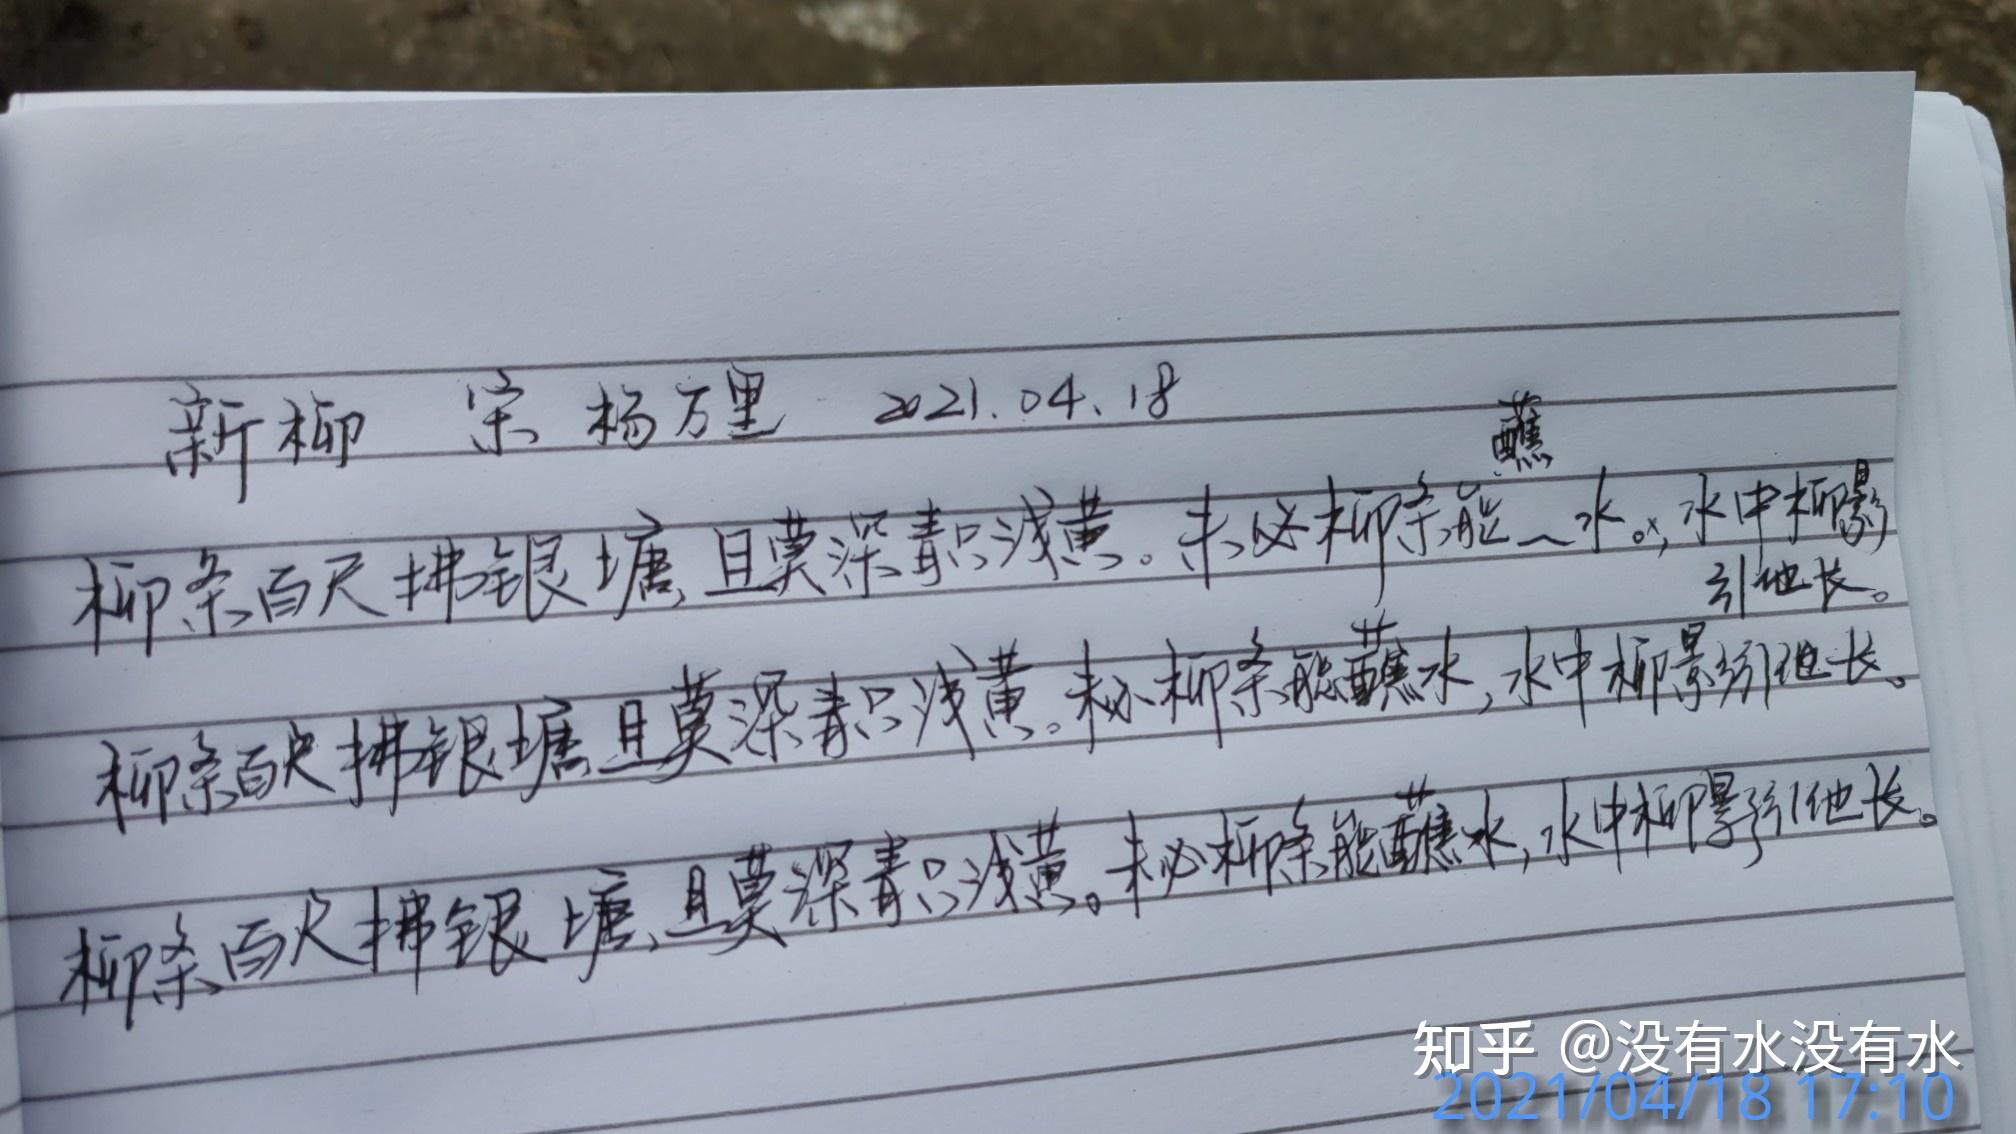 新柳 宋 杨万里 2021.04.18
蘸
柳条百尺拂银塘,且莫深青只浅黄。未必柳条能水。,水中柳影
引他长。
柳条百尺拂银塘,且莫深青只浅黄。未必柳条能蘸水,水中柳影引他长。
柳条百尺拂银塘,且莫深青只浅黄。未必柳条能蘸水,水中柳影引他长。
知乎 @没有水没有水
2021/04/18 17:10